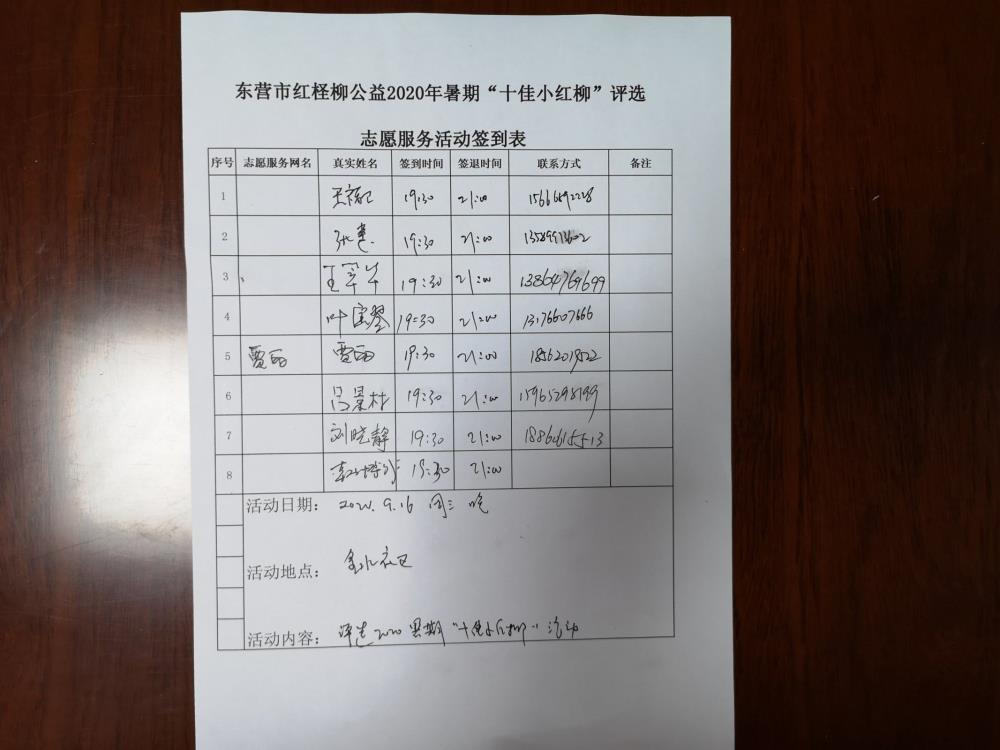 东营市红柽柳公益2020年暑期“十佳小红柳”评选
志愿服务活动签到表
序号 志愿服务网名 真实姓名 签到时间 签退时间 联系方式 备注
1 19:30 21:00
2 张惠 19:30 21:00
3 王军华 19:30 21:00 13864769699
4 叶宝琴 19:30 21:00 13176607666
5 贾丽 贾丽 19:30 21:00 18562019522
6 吕景村 19:30 21:00 15965298199
7 刘晓静 19:30 21:00 18860615513
8 19:30 21:00
活动日期： 2020.9.16 周三 晚
活动地点：
活动内容： 评选2020暑期“十佳小红柳”活动